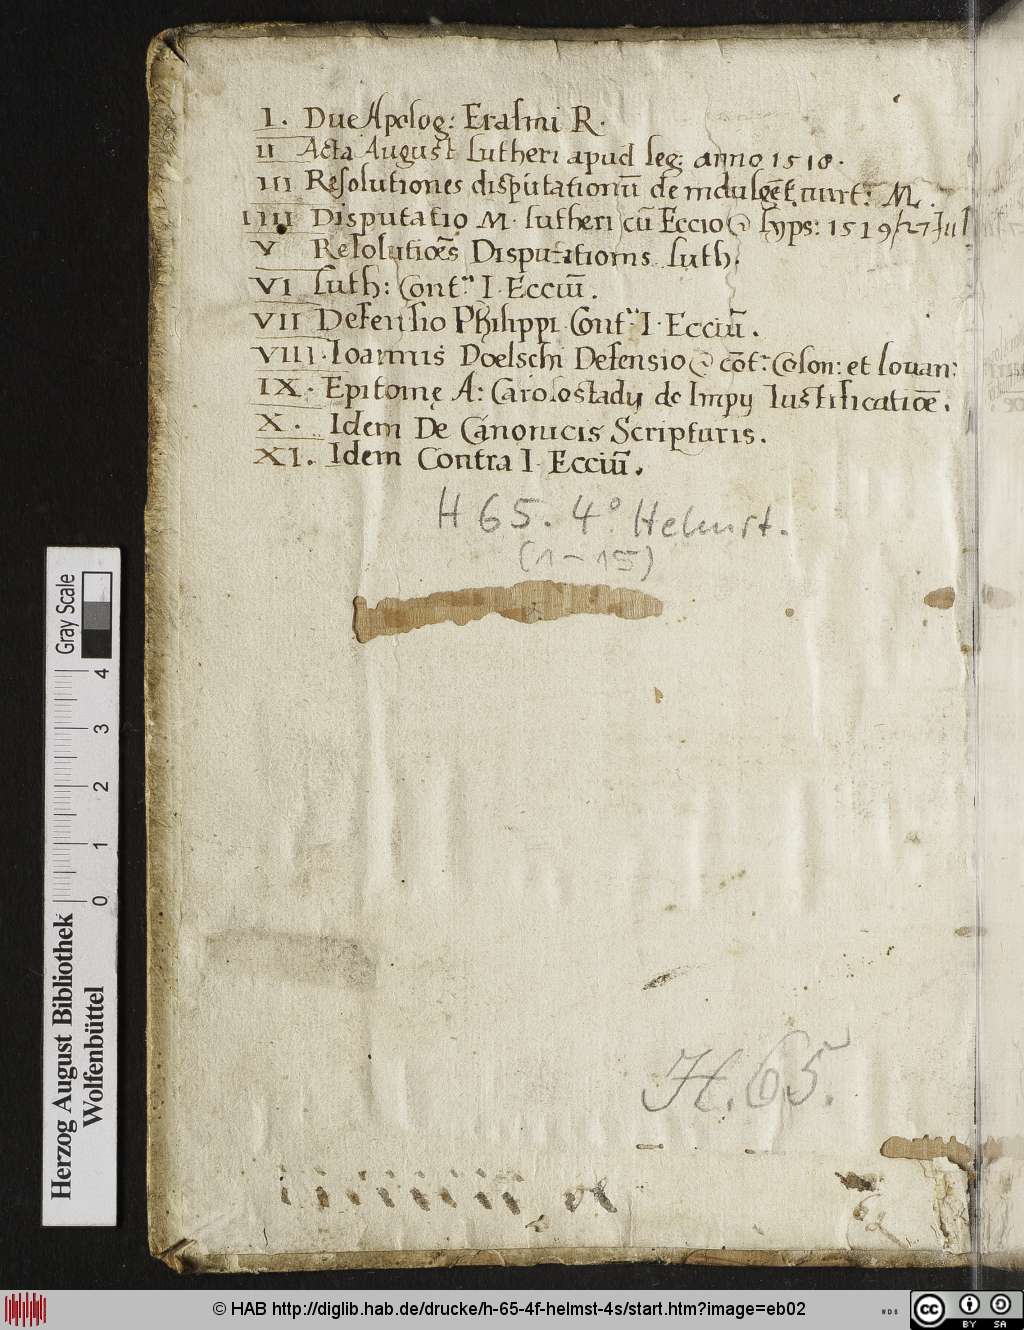 I. Due Apolog: Erasmi R.
II Acta August Lutheri apud leg: anno 1518.
III Resolutiones disputationū de indulgēt. M.
IIII Disputatio M. Lutheri cū Eccio Lyps: 1519 27 Jul
V Resolutioēs Disputationis Luth.
VI Luth: Cont: I. Ecciū.
VII Defensio Philippi Cont: I. Ecciū.
VIII. Ioannis Doelschi Defensio cōt: Colon: et Lovan:
IX. Epitomę A: Carolostadij de Impij Iustificatiōe.
X. Idem De Canonicis Scripturis.
XI. Idem Contra I. Ecciū.
H 65. 4° Helmst.
(1-15)
H. 65.
Gray Scale
4 3 2 1 0
Herzog August Bibliothek
Wolfenbüttel
© HAB http://diglib.hab.de/drucke/h-65-4f-helmst-4s/start.htm?image=eb02
cc BY SA